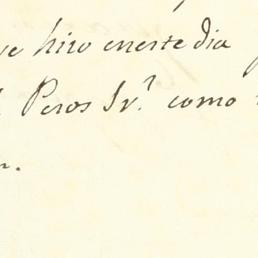 ve hizo eneste dia
Pesos Sr.^l como
n.